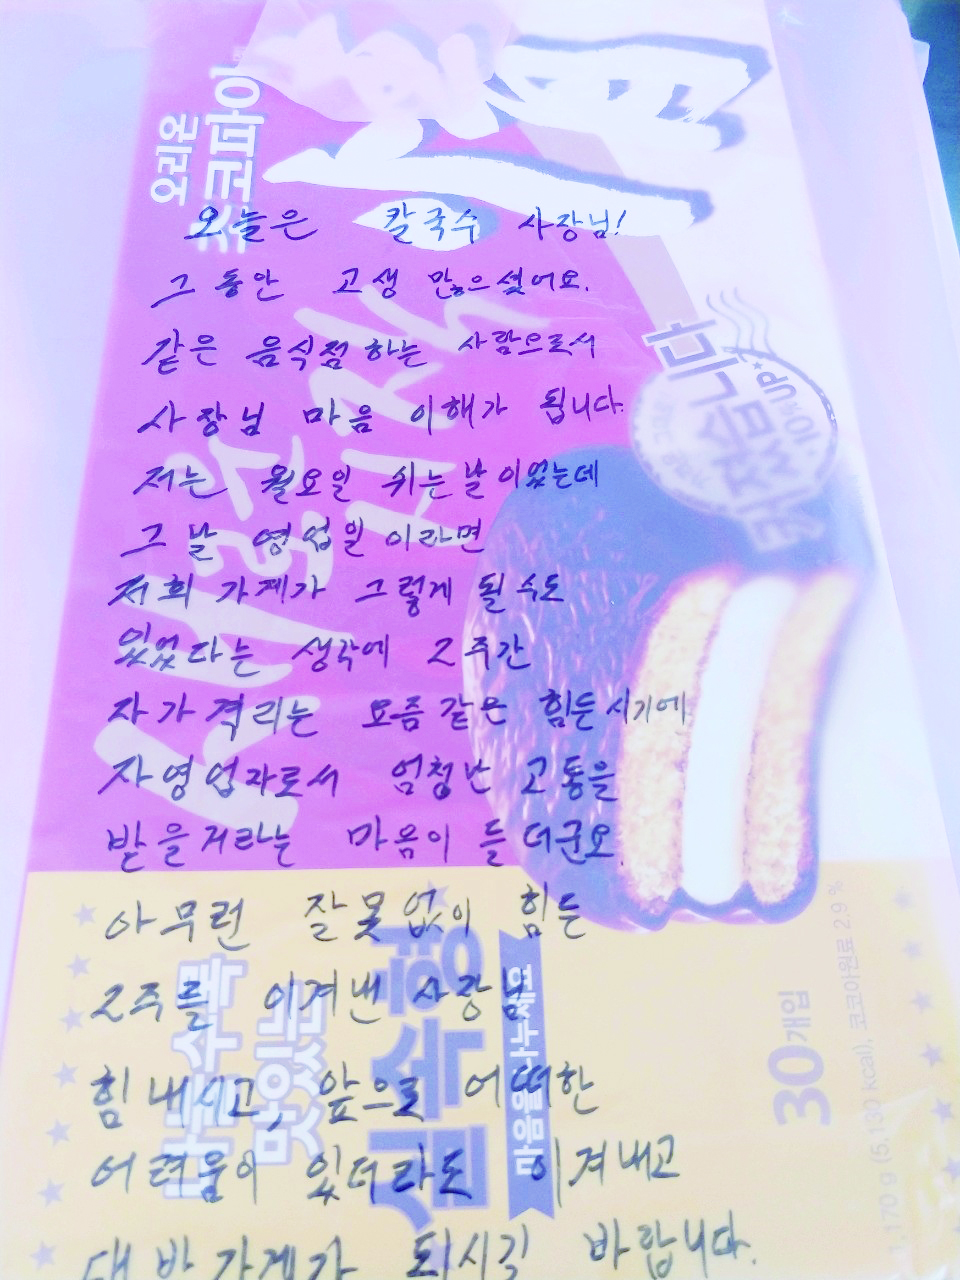 오리온
초코파이
오늘은 칼국수 사장님!
그동안 고생 많으셨어요.
같은 음식점 하는 사람으로서
사장님 마음 이해가 됩니다.
저는 월요일 쉬는날이었는데
그날 영업일 이라면
저희 가게가 그렇게 될수도
있었다는 생각에 2주간
자가격리는 요즘같은 힘든시기에
자영업자로서 엄청난 고통을
받을거라는 마음이 들더군요.
아무런 잘못없이 힘든
2주를 이겨낸 사장님
힘내시고, 앞으로 어떠한
어려움이 있더라도 이겨내고
대박가게가 되시길 바랍니다.
나눌수록
맛있는
실속형
마음을 나누세요
30개입
1,170 g (5,130 kcal), 코코아원료 2.9 %